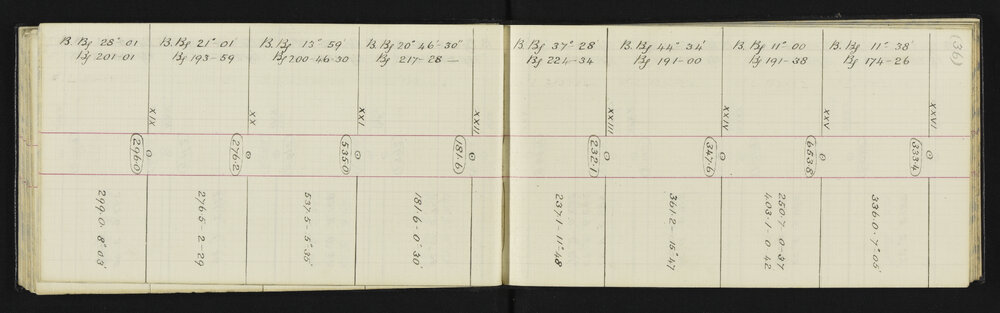 B. Bg 28° 01
Bg 201-01
B. Bg 21° 01'
Bg 193-59
B. Bg 13° 59'
Bg 200-46-30
B. Bg 20° 46'-30"
Bg 217-28 —
B. Bg 37° 28'
Bg 224-34
B. Bg 44° 34'
Bg 191-00
B. Bg 11° 00
Bg 191-38
B. Bg 11° 38'
Bg 174-26
(36)
XIX
XX
XXI
XXII
XXIII
XXIV
XXV
XXVI
296·0
276·2
535·0
181·6
232·1
347·6
653·8
333·4
299·0 - 8° 03'
276·5 - 2 - 29
537·5 - 5° 35'
181·6 - 0° 30'
237·1 - 11° 48
361·2 - 15° 47
250·7 - 0 - 37
403·1 - 0 42
336·0 - 7° 05'